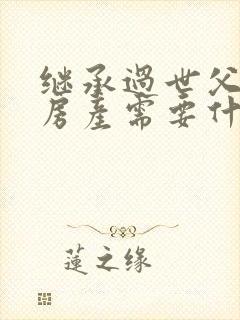 继承过世父
房产需要什
莲之缘